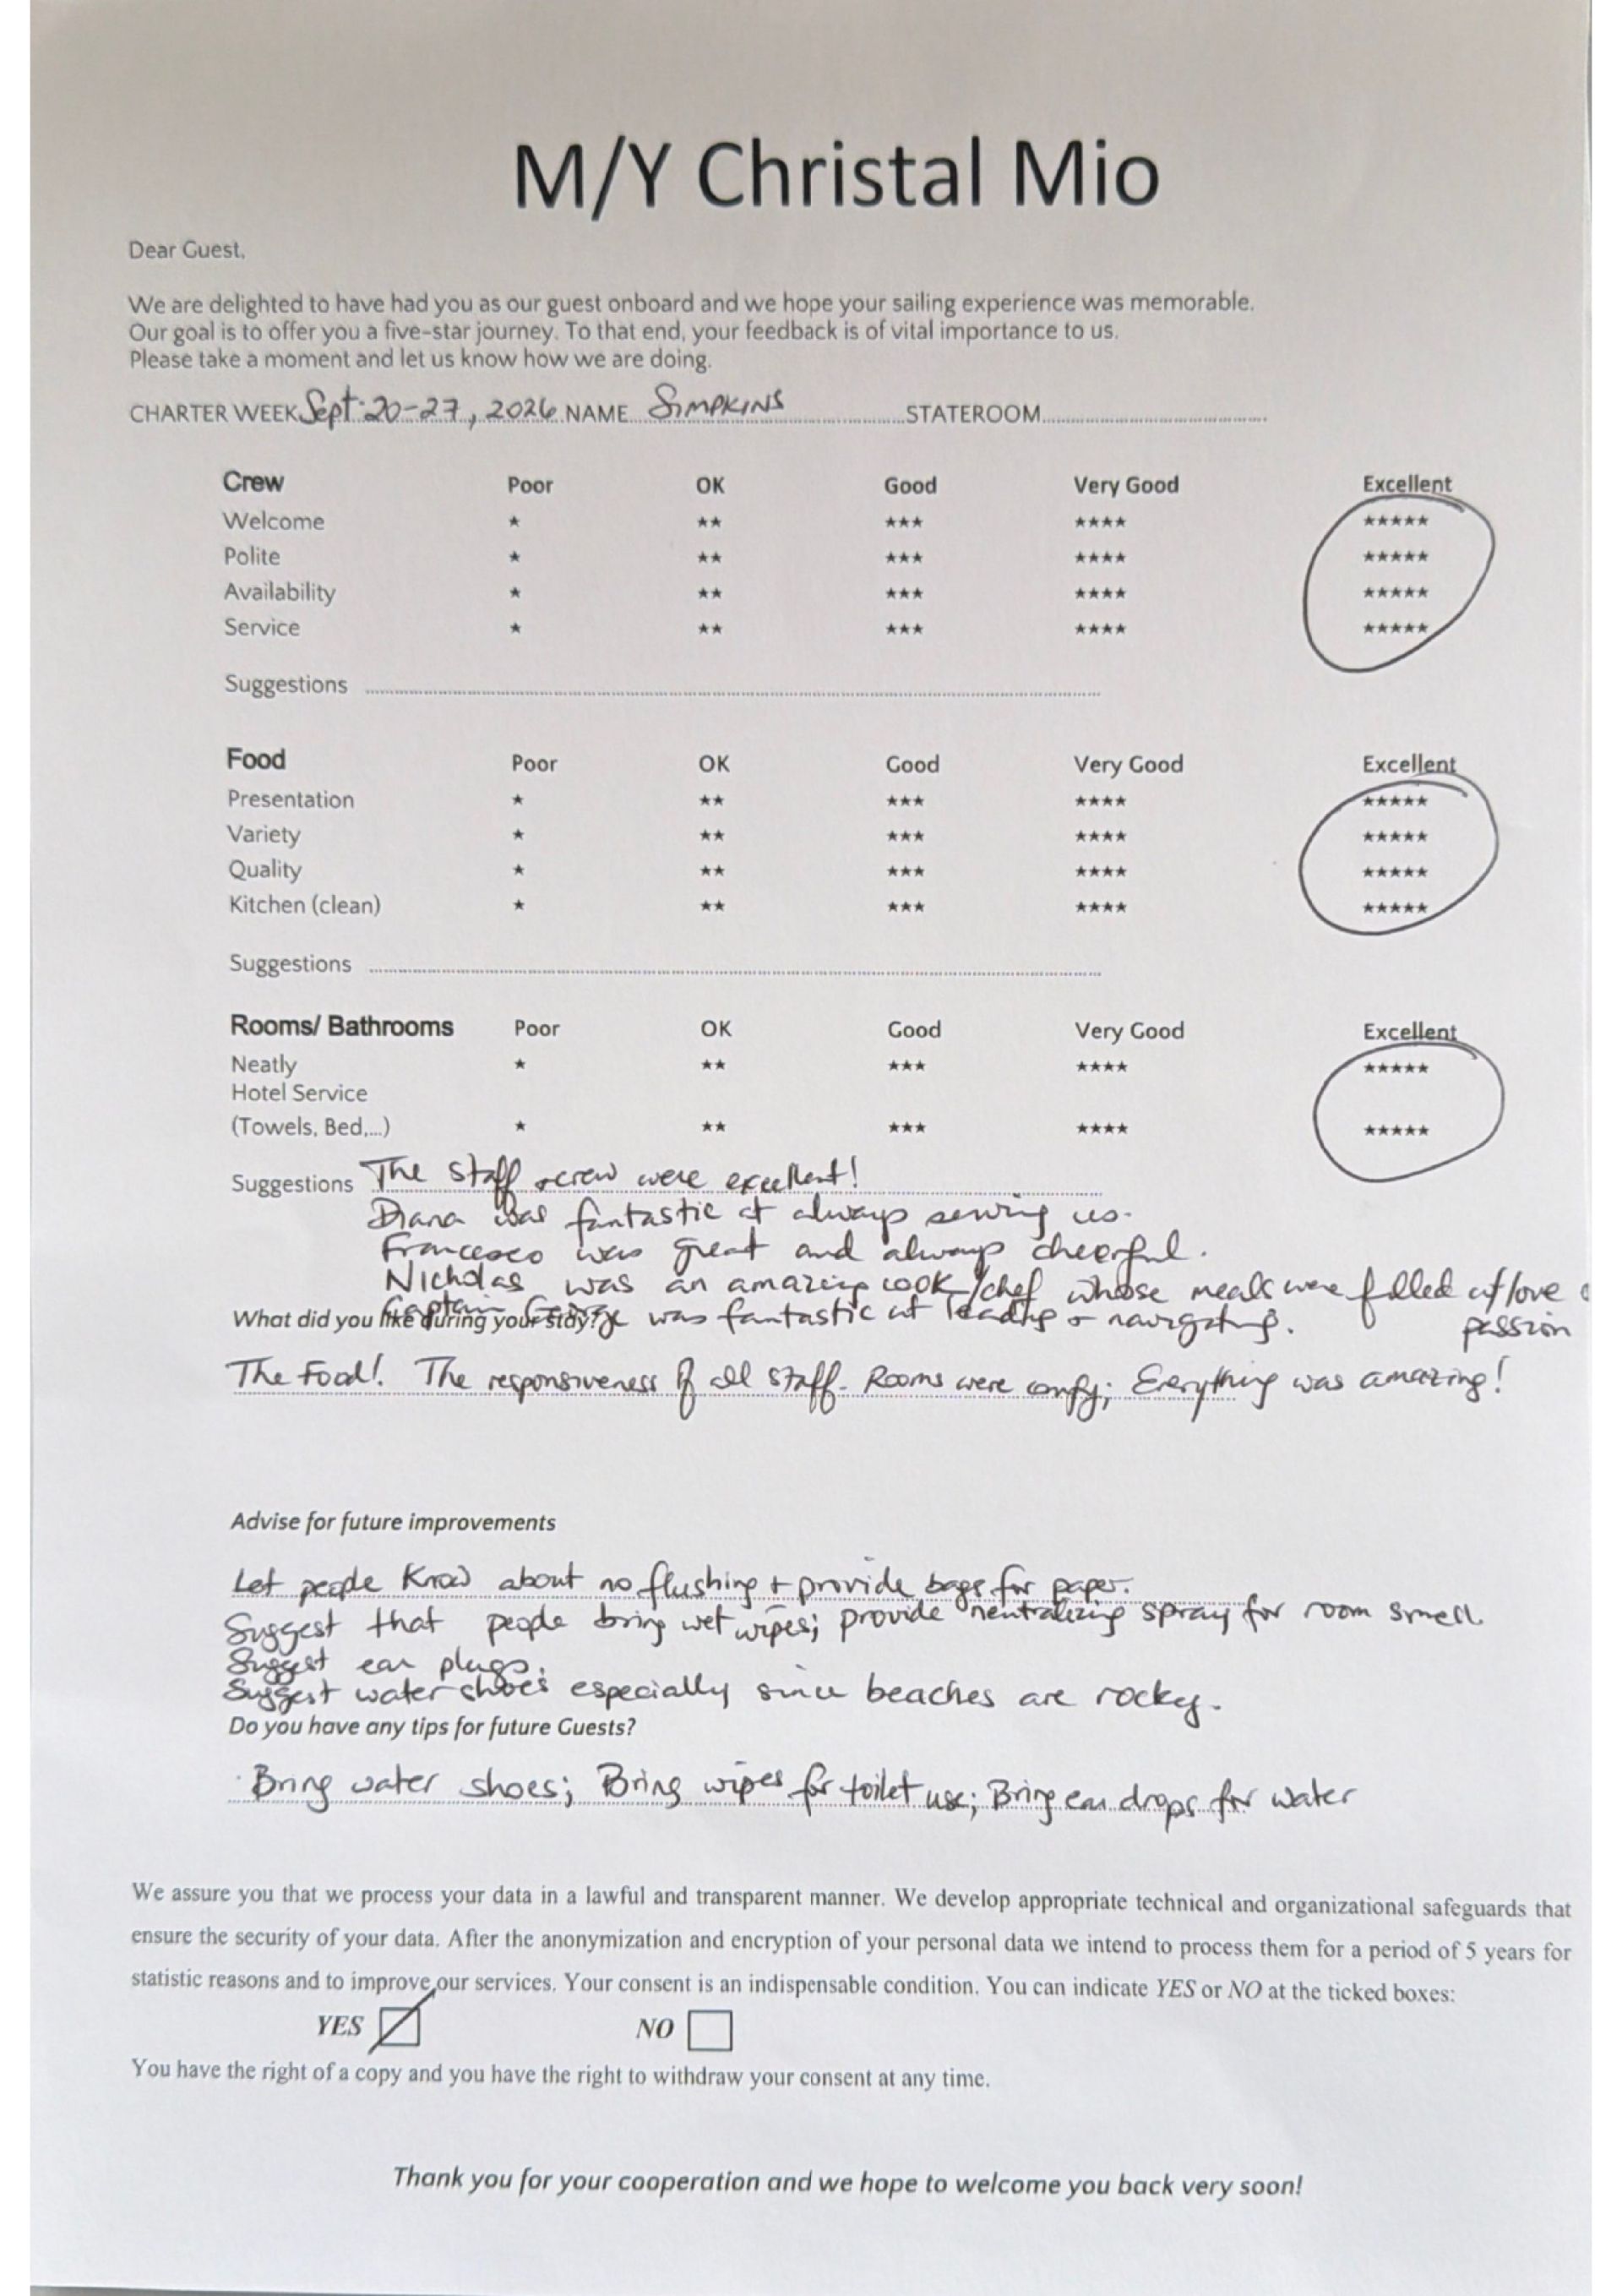 M/Y Christal Mio
Dear Guest,
We are delighted to have had you as our guest onboard and we hope your sailing experience was memorable.
Our goal is to offer you a five-star journey. To that end, your feedback is of vital importance to us.
Please take a moment and let us know how we are doing.
CHARTER WEEK Sept 20-27, 2026 NAME SIMPKINS STATEROOM
Crew Poor OK Good Very Good Excellent
Welcome ★ ★★ ★★★ ★★★★ ★★★★★
Polite ★ ★★ ★★★ ★★★★ ★★★★★
Availability ★ ★★ ★★★ ★★★★ ★★★★★
Service ★ ★★ ★★★ ★★★★ ★★★★★
Suggestions
Food Poor OK Good Very Good Excellent
Presentation ★ ★★ ★★★ ★★★★ ★★★★★
Variety ★ ★★ ★★★ ★★★★ ★★★★★
Quality ★ ★★ ★★★ ★★★★ ★★★★★
Kitchen (clean) ★ ★★ ★★★ ★★★★ ★★★★★
Suggestions
Rooms/ Bathrooms Poor OK Good Very Good Excellent
Neatly ★ ★★ ★★★ ★★★★ ★★★★★
Hotel Service
(Towels, Bed,...) ★ ★★ ★★★ ★★★★ ★★★★★
Suggestions The staff + crew were excellent!
Diana was fantastic at always serving us.
Francesco was great and always cheerful.
Nicholas was an amazing cook/chef whose meals were filled w/ love
passion
Captain George was fantastic at leading + navigating.
What did you like during your stay?
The Food! The responsiveness of all staff. Rooms were comfy; Everything was amazing!
Advise for future improvements
Let people know about no flushing + provide bags for paper.
Suggest that people bring wet wipes; provide neutralizing spray for room smell.
Suggest ear plugs.
Suggest water shoes especially since beaches are rocky.
Do you have any tips for future Guests?
Bring water shoes; Bring wipes for toilet use; Bring ear drops for water
We assure you that we process your data in a lawful and transparent manner. We develop appropriate technical and organizational safeguards that
ensure the security of your data. After the anonymization and encryption of your personal data we intend to process them for a period of 5 years for
statistic reasons and to improve our services. Your consent is an indispensable condition. You can indicate YES or NO at the ticked boxes:
YES NO
You have the right of a copy and you have the right to withdraw your consent at any time.
Thank you for your cooperation and we hope to welcome you back very soon!